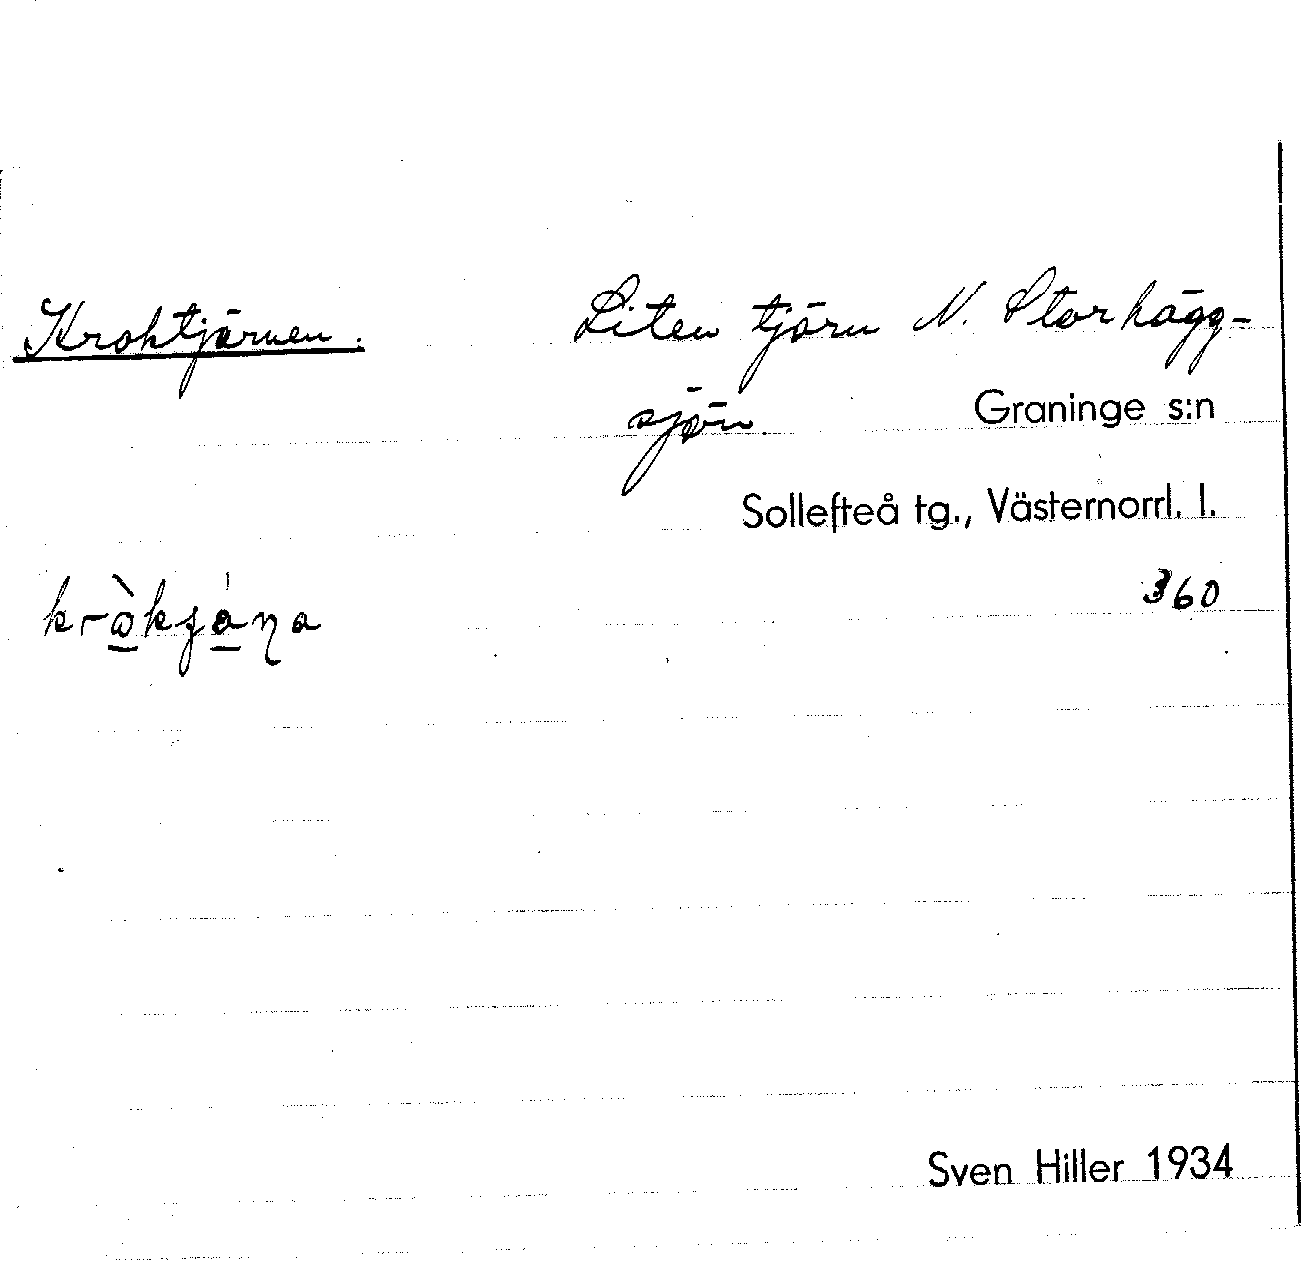 Kroktjärnen.
Liten tjärn N. Storhägg-
sjön.
Graninge s:n
Sollefteå tg., Västernorrl. l.
360
Sven Hiller 1934